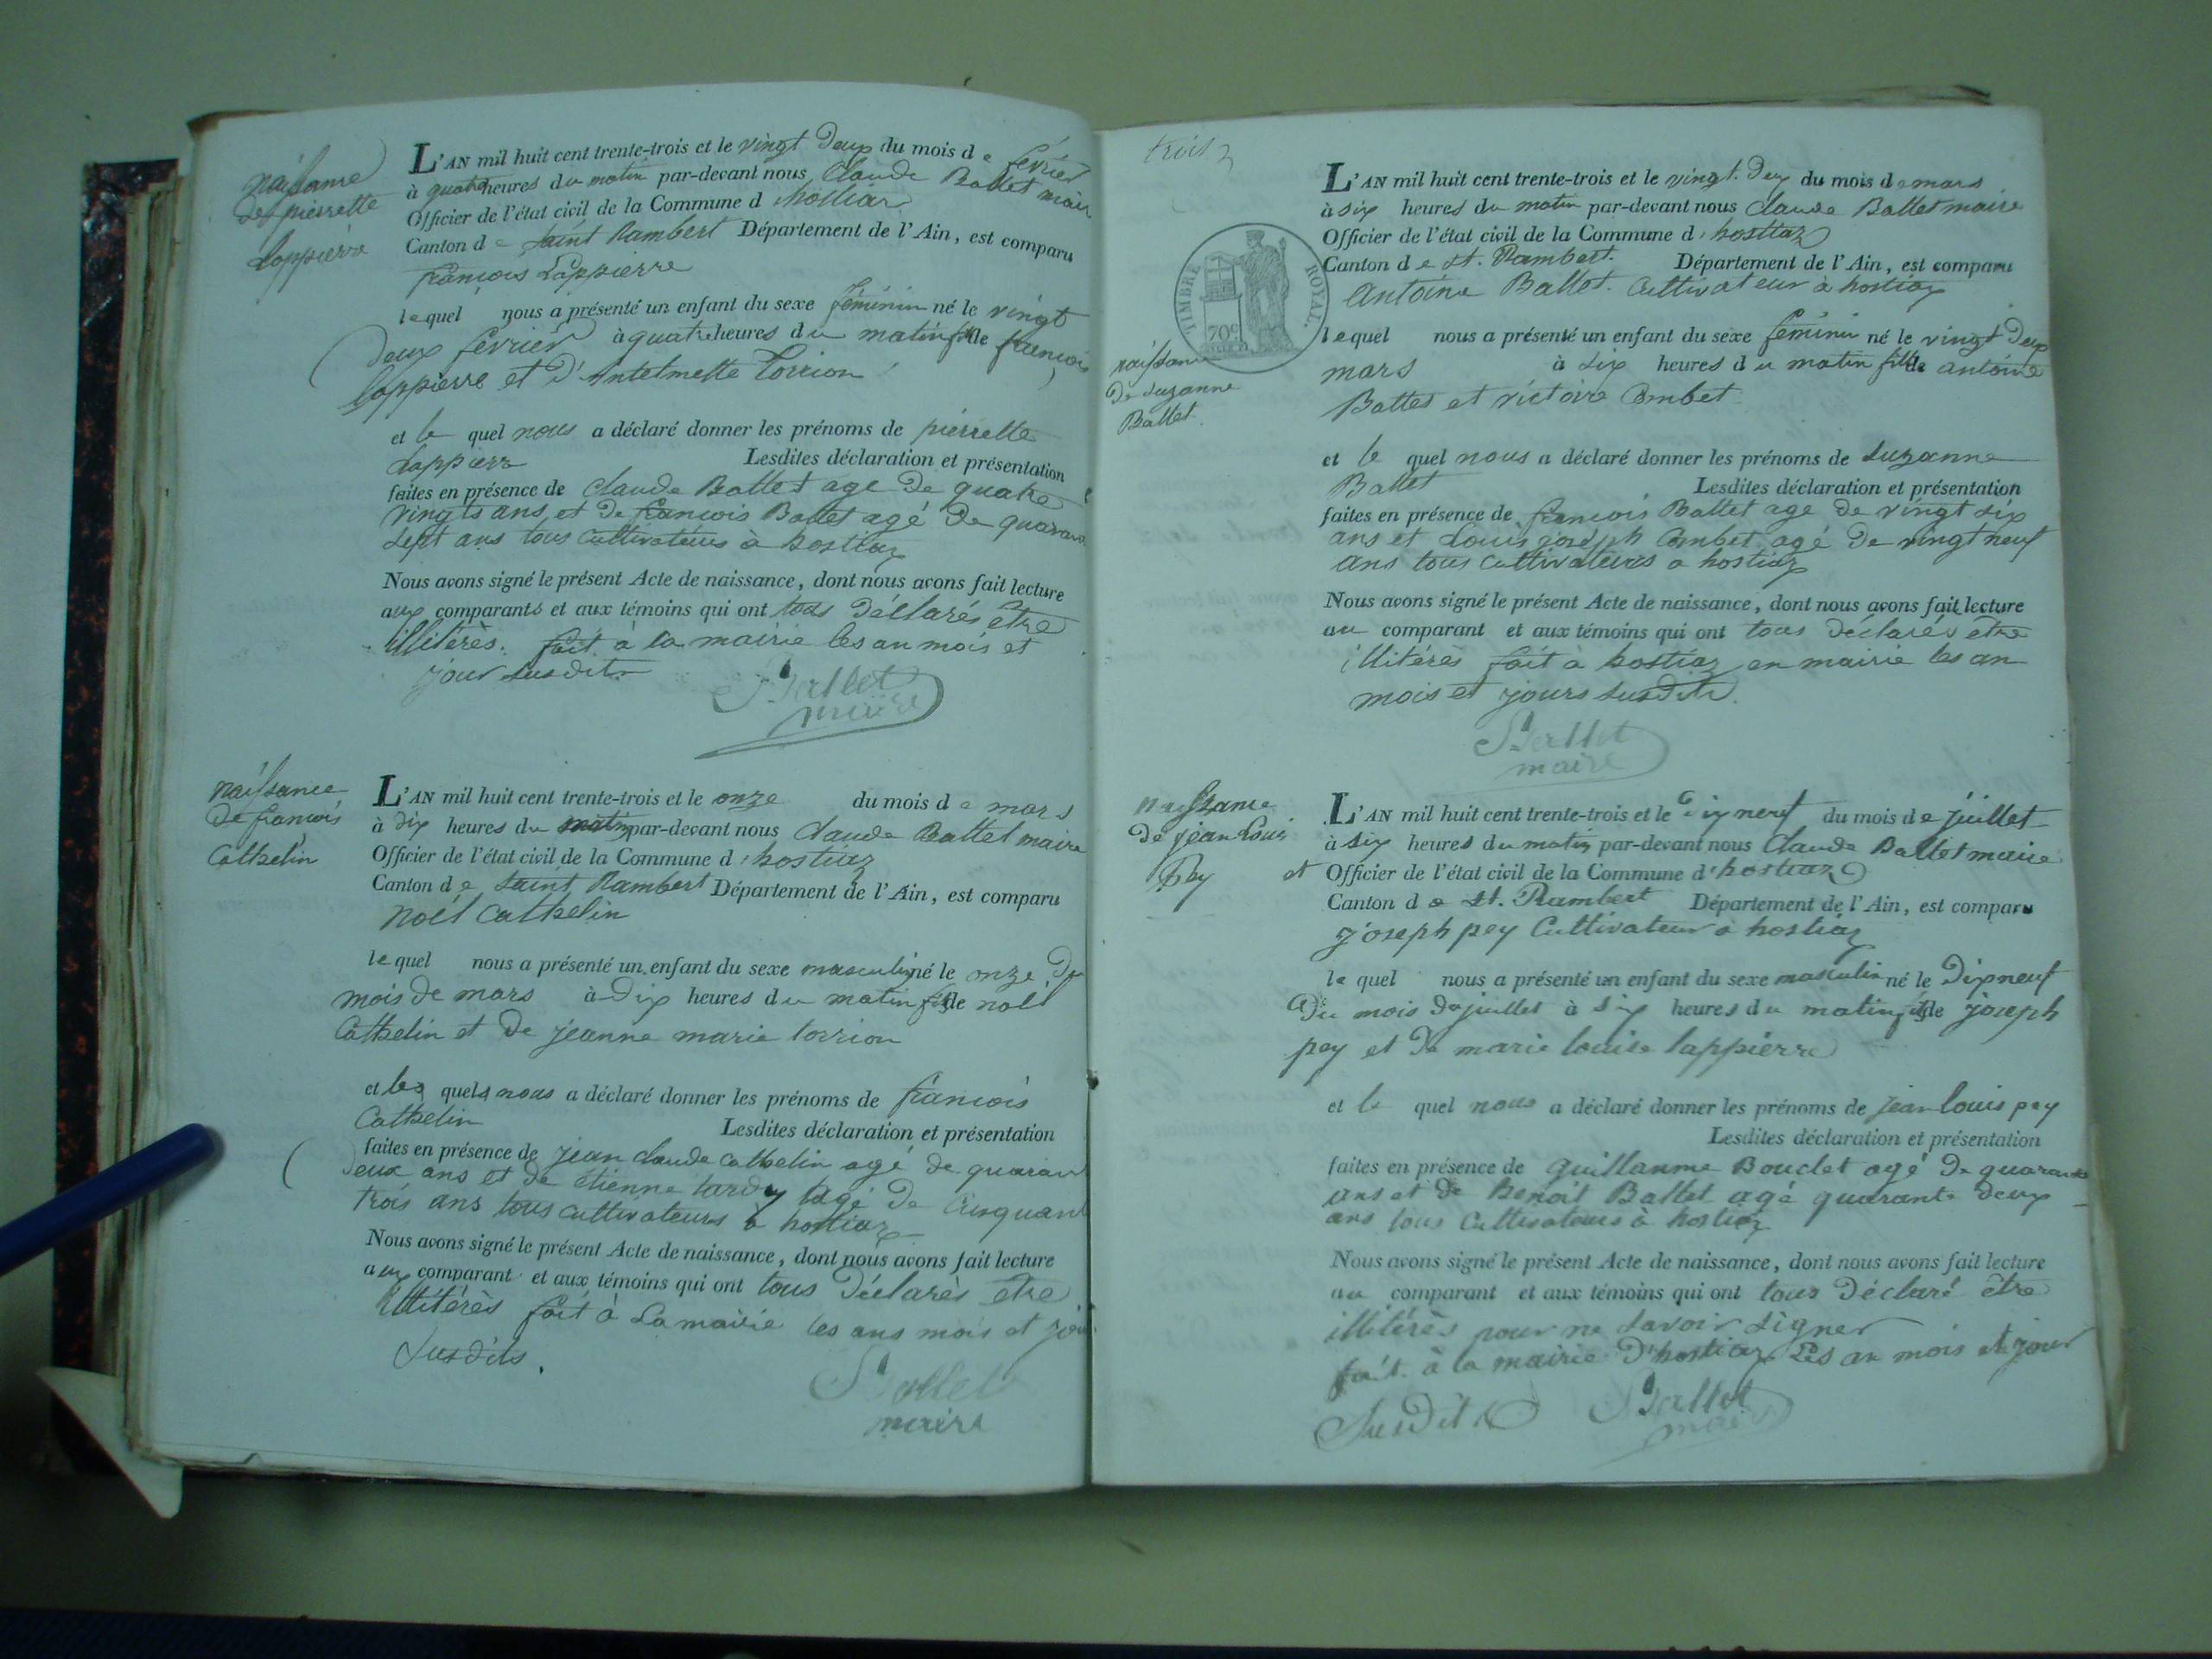 naissance
de pierrette
Lappierre
L'AN mil huit cent trente-trois et le vingt deux du mois de fevrier
à quatre heures du matin par-devant nous Claude Ballet maire
Officier de l'état civil de la Commune d hostiaz
Canton de saint Rambert Département de l'Ain, est comparu
francois Lappierre
lequel nous a présenté un enfant du sexe féminin né le vingt
deux fevrier à quatre heures du matin fille de francois
lappierre et d'Antelmette torrion
et le quel nous a déclaré donner les prénoms de pierrette
Lappierr Lesdites déclaration et présentation
faites en présence de Claude Ballet age de quatre
vingts ans et de francois Ballet agé de quarante
sept ans tous Cultivateurs a hostiaz
Nous avons signé le présent Acte de naissance, dont nous avons fait lecture
aux comparants et aux témoins qui ont tous déclarés être
illitérès. fait à la mairie les an mois et
jour susdits
Ballet
maire
naissance
de francois
Cathelin
L'AN mil huit cent trente-trois et le onze du mois de mars
à dix heures du matin par-devant nous Claude Ballet maire
Officier de l'état civil de la Commune d'hostiaz
Canton de saint Rambert Département de l'Ain, est comparu
noél Cathelin
lequel nous a présenté un enfant du sexe masculin né le onze du
mois de mars à dix heures du matin fils de noél
Cathelin et de jeanne marie torrion
et les quels nous a déclaré donner les prénoms de francois
Cathelin Lesdites déclaration et présentation
faites en présence de jean claude cathelin agé de quarante
deux ans et de étienne tardy agé de cinquante
trois ans tous cultivateurs a hostiaz
Nous avons signé le présent Acte de naissance, dont nous avons fait lecture
aux comparant et aux témoins qui ont tous déclarès etre
illitérès fait à La mairie les ans mois et jour
susdits.
Ballet
maire
trois
TIMBRE ROYAL.
70c
naissance
de suzanne
Ballet.
L'AN mil huit cent trente-trois et le vingt deux du mois de mars
à six heures du matin par-devant nous Claude Ballet maire
Officier de l'état civil de la Commune d'hosttaz
Canton de st. Rambert. Département de l'Ain, est comparu
Antoine Ballet. Cultivateur à hostiaz
lequel nous a présenté un enfant du sexe feminin né le vingt deux
mars à six heures du matin fille de antoine
Ballet et victoire Combet
et le quel nous a déclaré donner les prénoms de suzanne
Ballet Lesdites déclaration et présentation
faites en présence de francois Ballet age de vingt six
ans et Louis joseph Combet agé de vingt neuf
ans tous cultivateurs a hostiaz
Nous avons signé le présent Acte de naissance, dont nous avons fait lecture
au comparant et aux témoins qui ont tous déclarés etre
illitérès fait à hostiaz en mairie les an
mois et jours susdits.
Ballet
maire
naissance
de jean Louis
Pey
L'AN mil huit cent trente-trois et le dix neuf du mois de juillet
à six heures du matin par-devant nous Claude Ballet maire
et Officier de l'état civil de la Commune d'hostiaz
Canton de st. Rambert Département de l'Ain, est comparu
joseph pey Cultivateur à hostiaz
le quel nous a présenté un enfant du sexe masculin né le dix neuf
du mois de juillet à six heures du matin fils de joseph
pey et de marie louise lappierre
et le quel nous a déclaré donner les prénoms de jean louis pey
Lesdites déclaration et présentation
faites en présence de guillaume Bouclet agé de quarante
ans et de Benoit Ballet agé quarante deux
ans tous Cultivateurs à hostiaz
Nous avons signé le présent Acte de naissance, dont nous avons fait lecture
au comparant et aux témoins qui ont tous déclaré être
illitérès pour ne savoir signer
fait à la mairie d'hostiaz Les an mois et jour
Susdits Ballet
maire